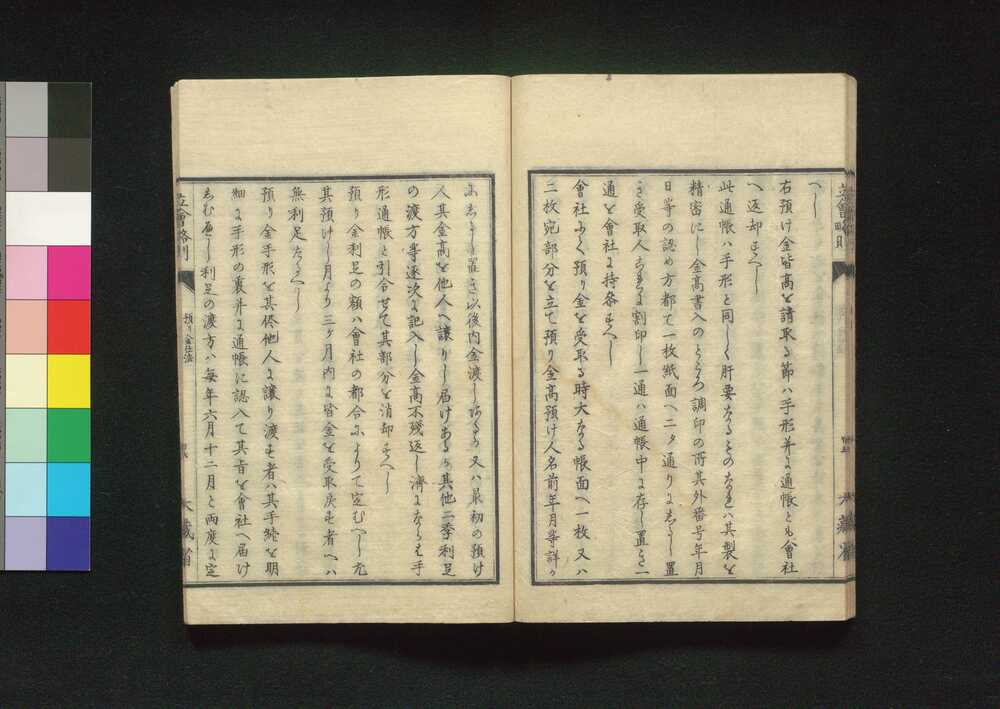 へし
右預け金皆高を請取る節ハ手形并に通帳とも會社
へ返却すへし
此通帳ハ手形と同しく肝要なるものなれハ其製を
精密にし金高書入のところ調印の所其外番号年月
日等の認め方都て一枚紙面へ二タ通りにしるし置
き受取人しるしに割印し一通ハ通帳中に存し置き一
通を會社に持参すへし
會社ふて預り金を受取る時大なる帳面へ一枚又ハ
二枚宛部分を立て預り金高預け人名前年月等詳か
にしるし置き以後内金渡しあるか又ハ最初の預け
人其金高を他人へ譲りし届けあるか其他二季利足
の渡方等逐次に記入し金高不残返し濟にならは手
形通帳と引合せて其部分を消却すへし
預り金利足の額ハ會社の都合によりて定むへし尤
其預けし月より三ヶ月内に皆金を受取戻す者へハ
無利足たるへし
預り金手形を其侭他人に譲り渡す者ハ其手続を明
細に手形の裏并に通帳に認入て其旨を會社へ届け
しむへし利足の渡方ハ毎年六月十二月と両度に定
立會略則
預り金仕法
大蔵省
立會略則
大蔵省